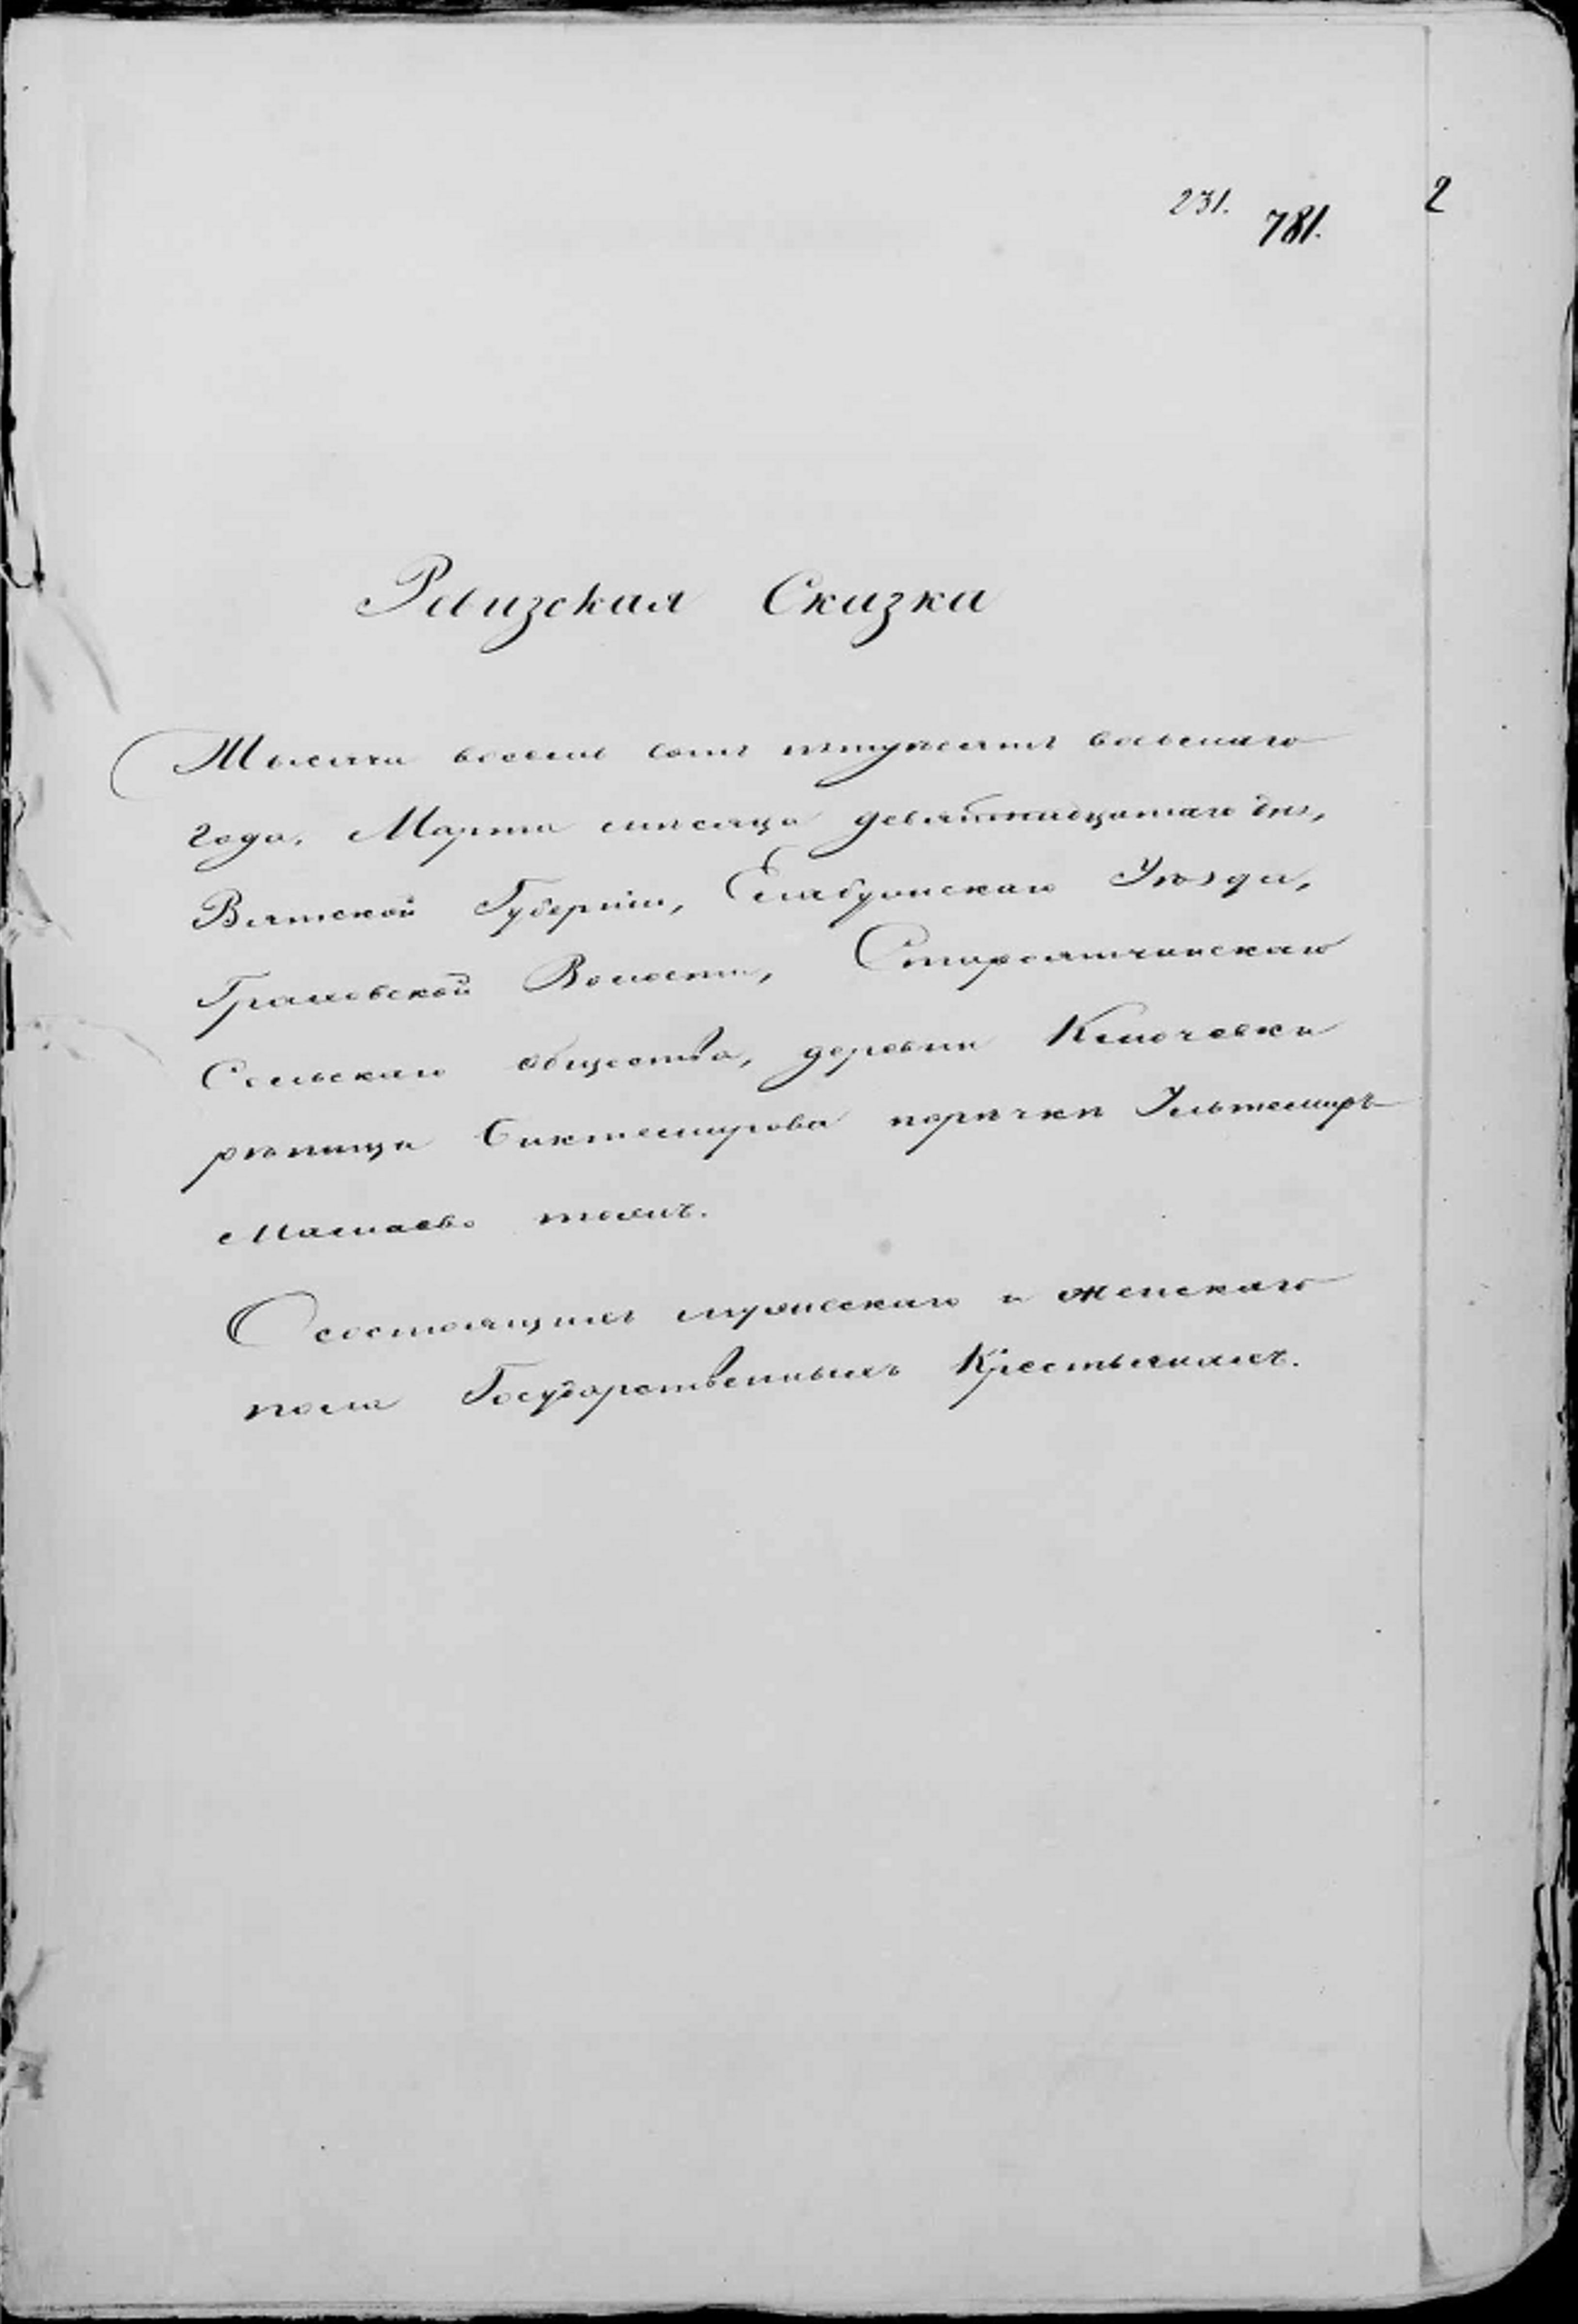 231. 781. 2
Ревизская Сказка
Тысяча восемь сотъ пятдесятъ восьмаго
года, Марта мѣсяца девятнадцатаго дня,
Вятской Губерніи, Елабужскаго Уѣзда,
Граховской Волости, Староятчинскаго
Сельскаго общества, деревни Ключевки
Биктемирова
тожъ.
О состоящихъ мужескаго и женскаго
пола Государственныхъ Крестьянахъ.